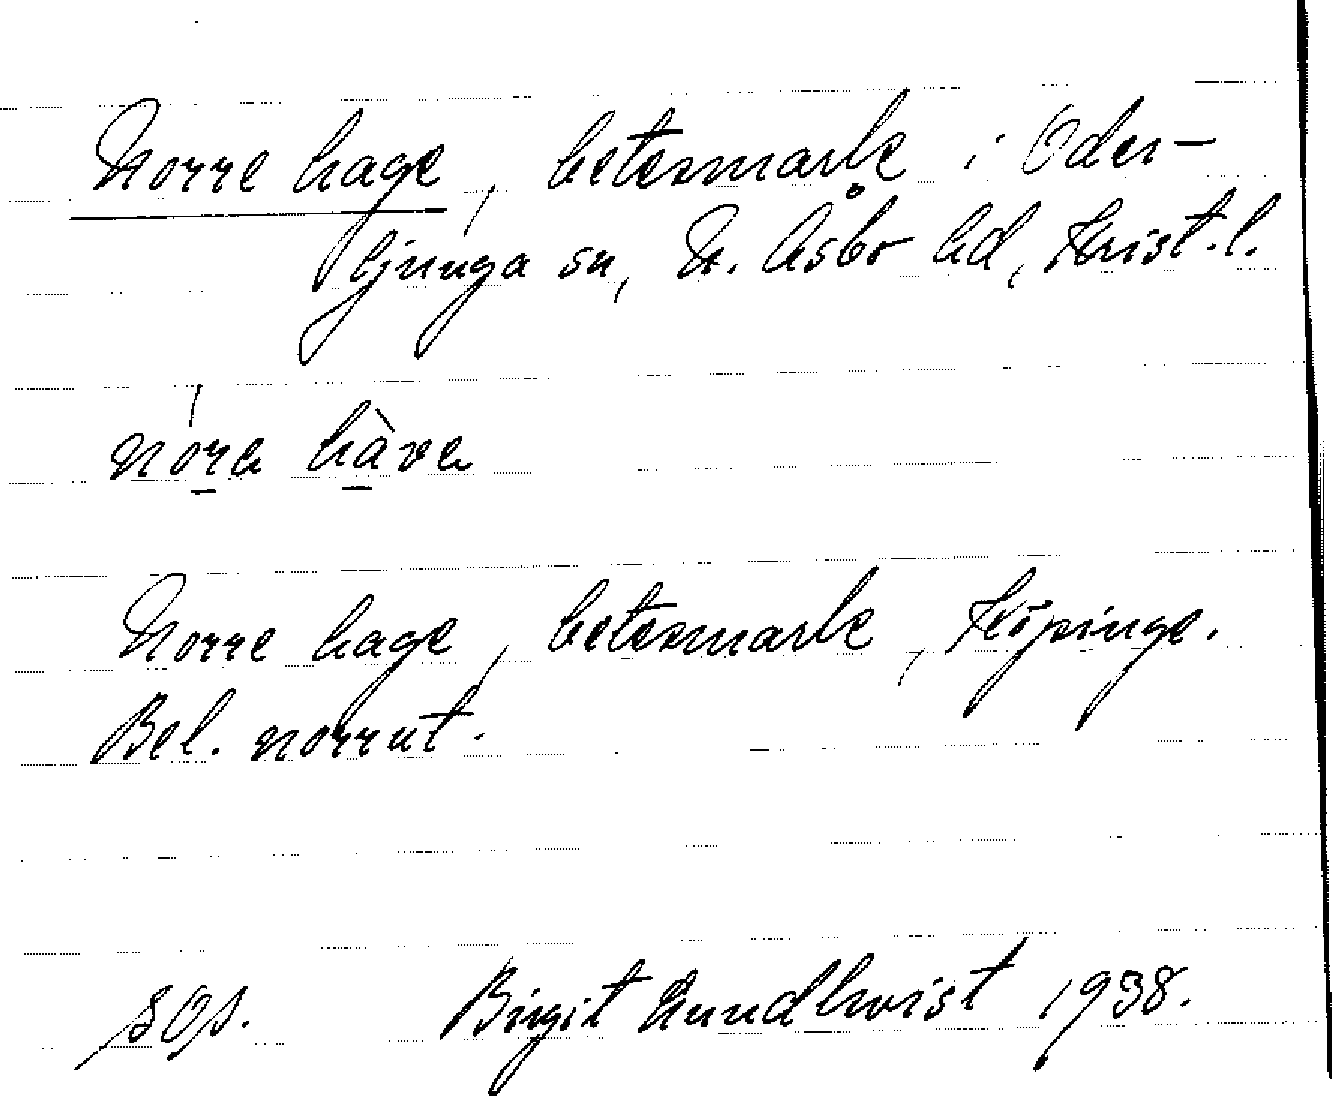 Norre hage, betesmark i Oder-
ljunga sn, N. Åsbo hd, Krist. l.
nóra hàva
Norre hage, betesmark, Köpinge.
Bel. norrut.
SOA. Birgit Lundkvist 1938.